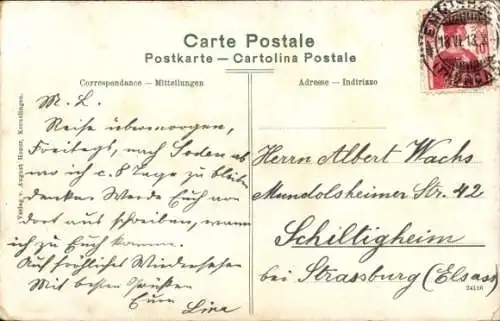 Carte Postale
Postkarte — Cartolina Postale
Correspondance — Mitteilungen
Adresse — Indirizzo
M. L.
Reise übermorgen,
Freitags, nach Soden ab
wo ich c. 8 Tage zu bleiben
denke. Werde Euch von
dort aus schreiben, wann
ich zu Euch komme.
Auf fröhliches Wiedersehen
Mit besten Grüßen
Eure Lina
Herrn Albert Wachs
Mundolsheimer Str. 42
Schiltigheim
bei Strassburg (Elsass)
24116
Verlag v. August Hauer, Kreuzlingen.
18.VI.13